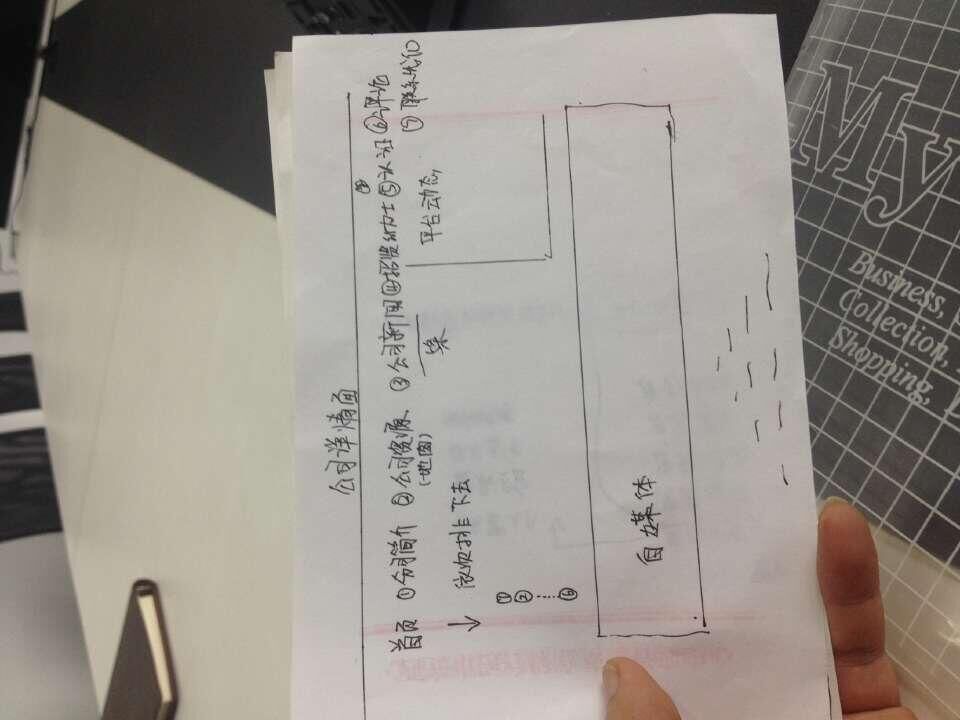 公司详情页
首页 ①公司简介 ②公司资源 ③公司新闻 ④招贤纳士 ⑤认证 ⑥评论
(地图)
⑦联系我们
↓ 依次排下去
平台动态,
①
②
⑥
自媒体
My
Business,
Collection,
Shopping,